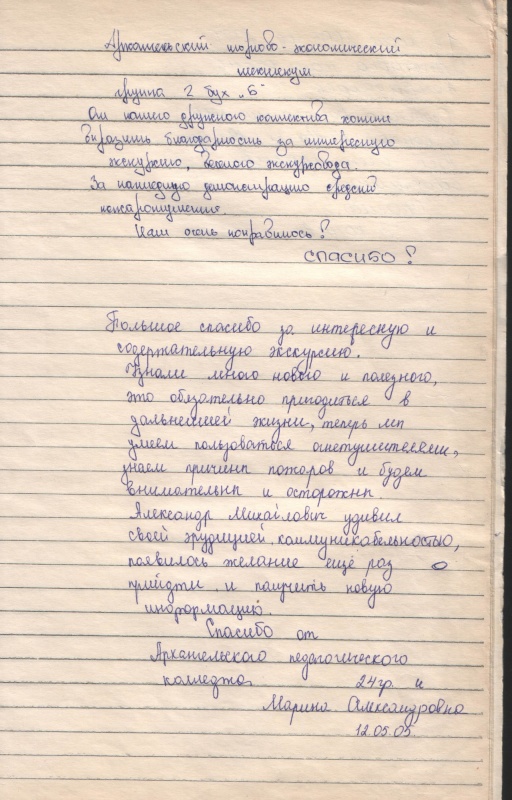 Архангельский торгово-экономический
техникум
группа 2 бух „Б"
От нашего дружного коллектива хотим
выразить благодарность за интересную
экскурсию, веселого экскурсовода.
За наглядную демонстрацию средств
пожаротушения.
Нам очень понравилось!
СПАСИБО!
Большое спасибо за интересную и
содержательную экскурсию.
Узнали много нового и полезного,
это обязательно пригодиться в
дальнейшей жизни, теперь мы
умеем пользоваться огнетушителями,
знаем причины пожаров и будем
внимательны и осторожны.
Александр Михайлович удивил
своей эрудицией, коммуникабельностью,
появилось желание ещё раз
прийдти и получить новую
информацию.
Спасибо от
Архангельского педагогического
колледжа. 24 гр. и
Марина Александровна
12.05.05